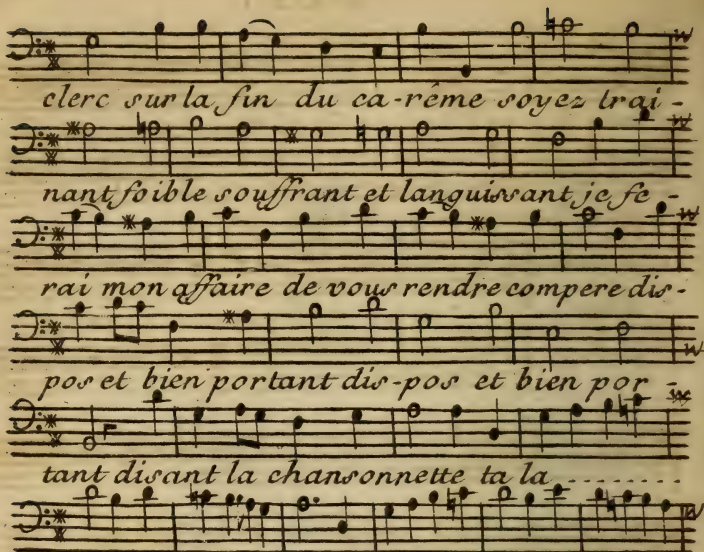 clerc sur la fin du ca-rême soyez trai-
nant foible souffrant et languissant je fe-
rai mon affaire de vous rendre compere dis-
pos et bien portant dis-pos et bien por-
tant disant la chansonnette ta la ........